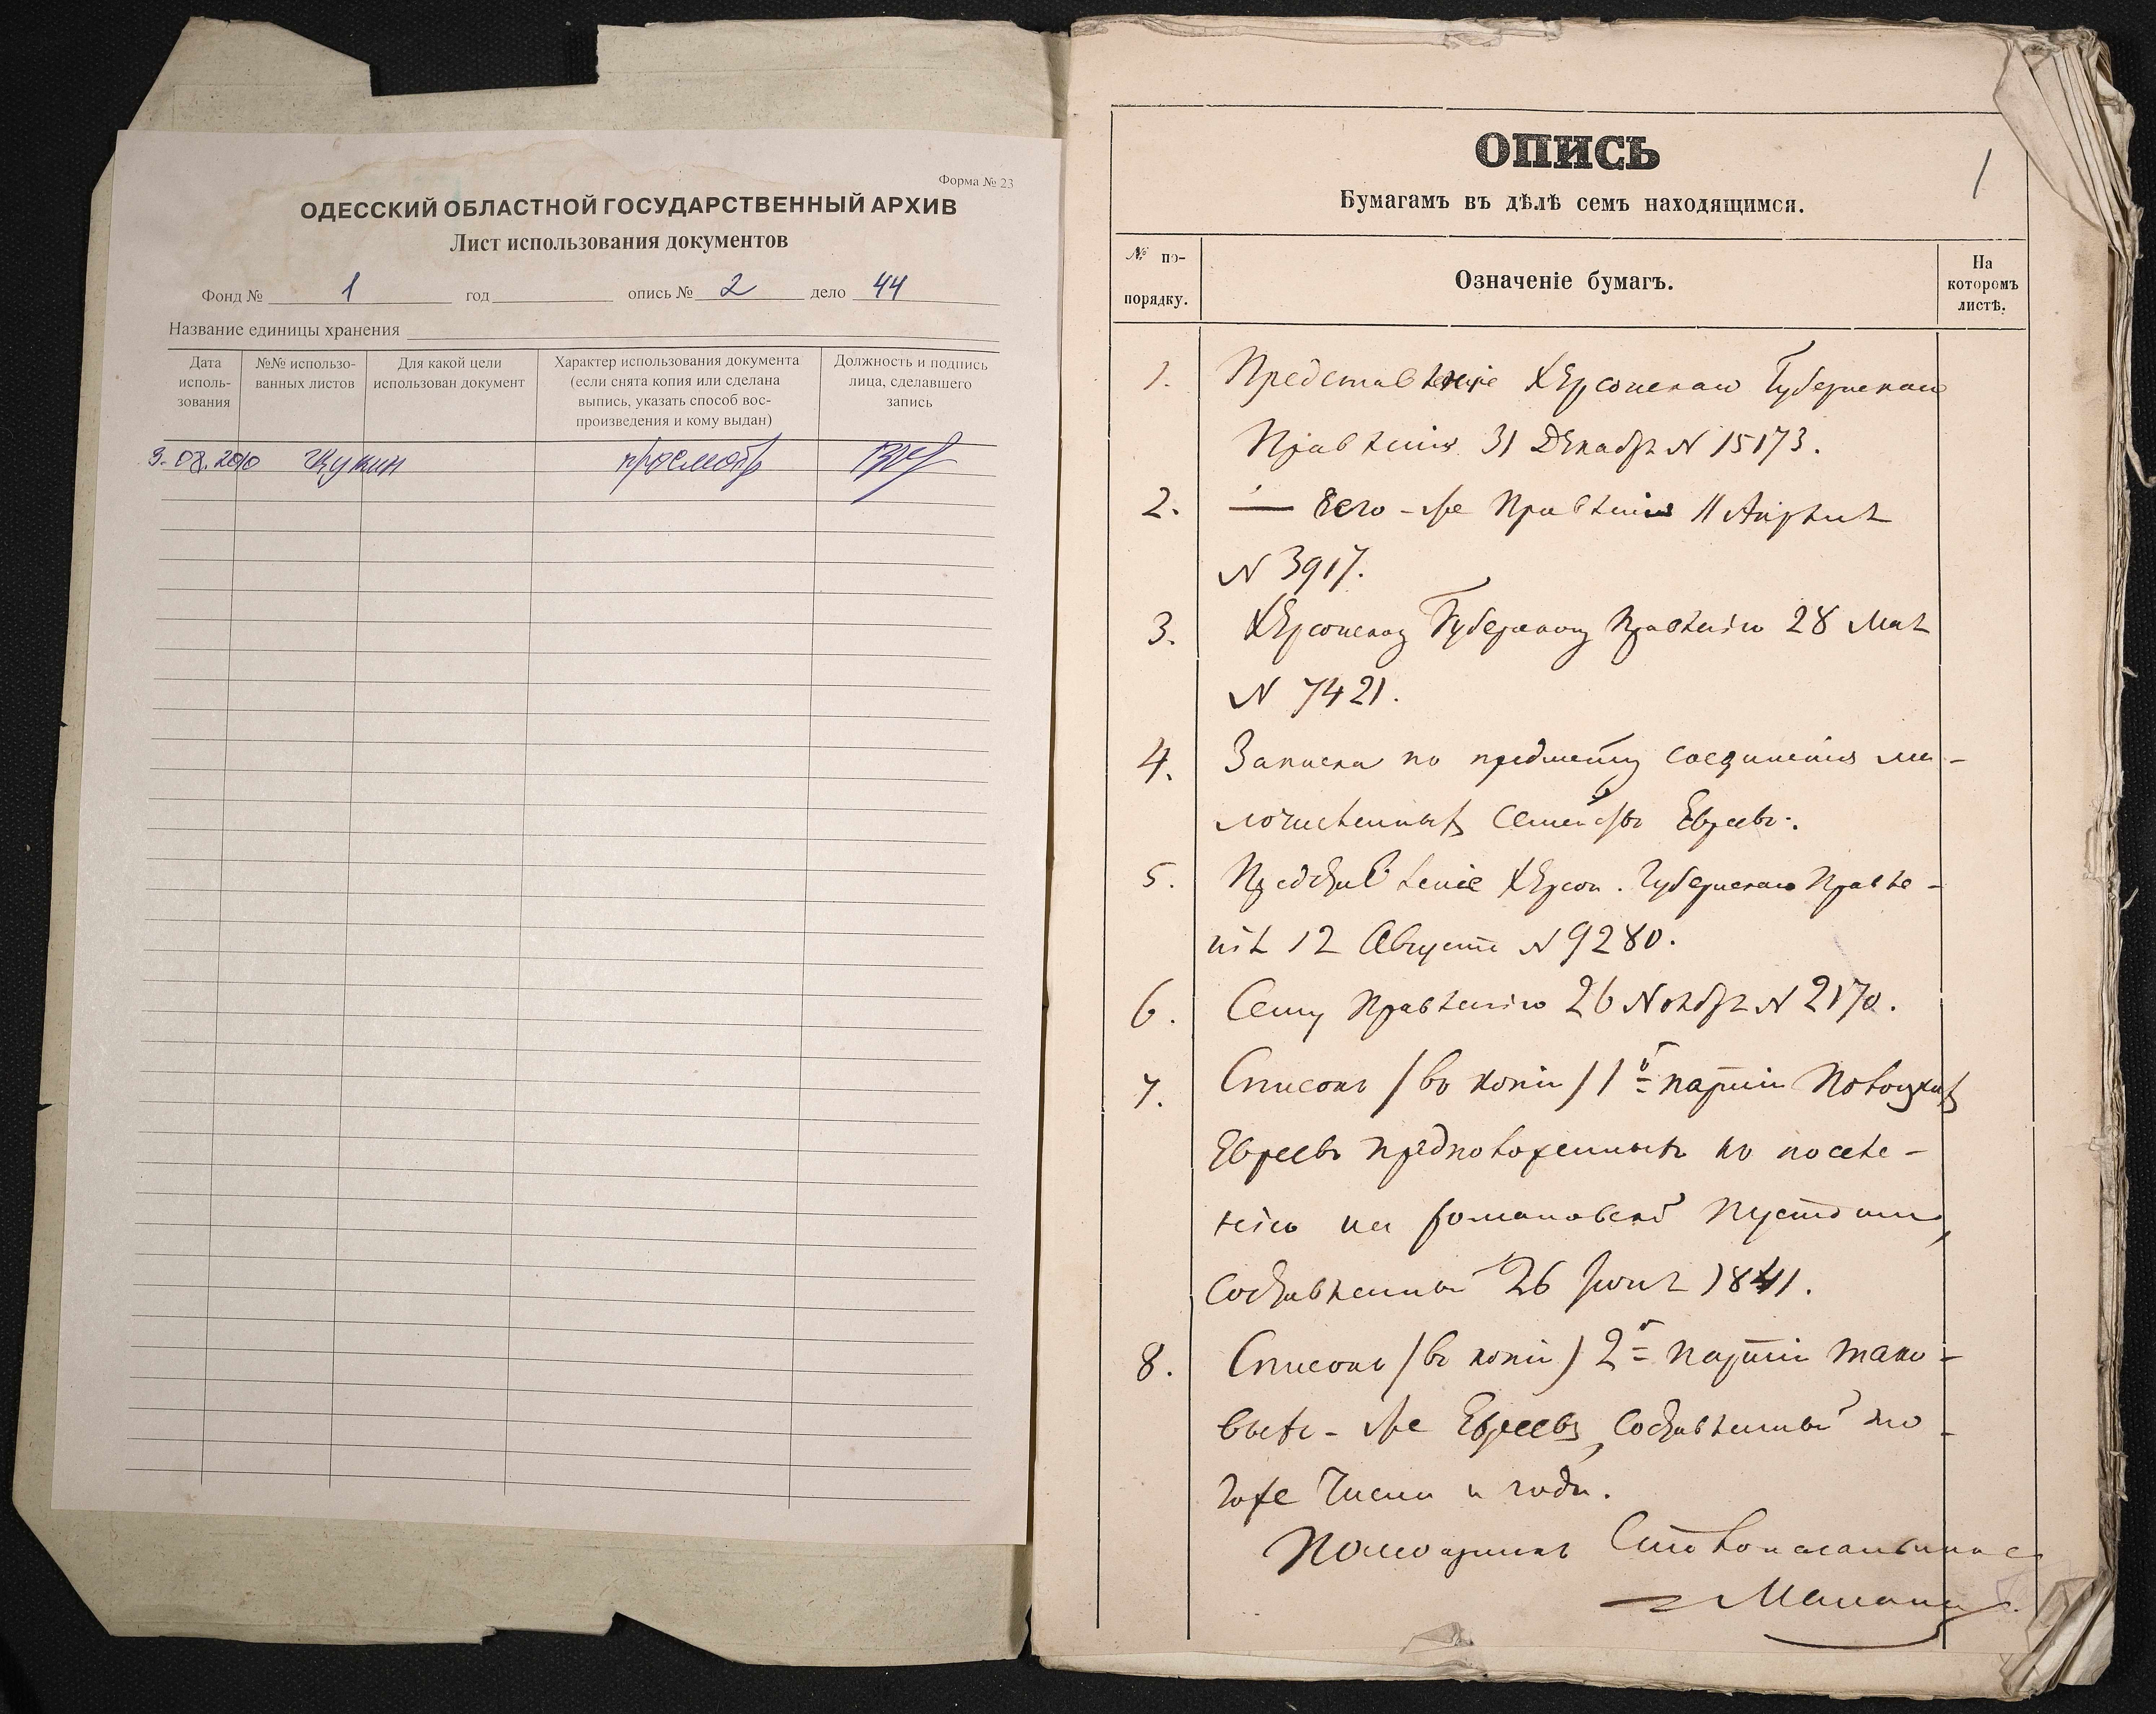 Форма № 23
ОДЕССКИЙ ОБЛАСТНОЙ ГОСУДАРСТВЕННЫЙ АРХИВ
Лист использования документов
Фонд № 1 год опись № 2 дело 44
Название единицы хранения
Дата исполь- зования
№№ использо- ванных листов
Для какой цели использован документ
Характер использования документа (если снята копия или сделана выпись, указать способ вос- произведения и кому выдан)
Должность и подпись лица, сделавшего запись
просмотр
1
ОПИСЬ
Бумагамъ въ дѣлѣ семъ находящимся.
№ по- порядку.
Означеніе бумагъ.
На которомъ листѣ.
1. Представленіе Херсонскаго Губернскаго
Правленія 31 Декабря N 15173.
2. — Того-же Правленія 11 Апрѣля
N 3917.
3. Херсонскому Губернскому Правленію 28 Мая
N 7421.
4. Записка по предмету соединенія ма-
лочисленныхъ семействъ Евреевъ.
5. Представленіе Херсон. Губернскаго Правле-
нія 12 Августа N 9280.
6. Сему Правленію 26 Ноября N 2170.
7. Списокъ /въ копіи/ 1й партіи Полоцкихъ
Евреевъ предположенныхъ къ поселе-
нію на Романовской Пустоши,
составленный 26 Іюня 1841.
8. Списокъ /въ копіи/ 2й партіи тако-
выхъ-же Евреевъ, составленный то-
гоже числа и года.
Помощникъ Столоначальника